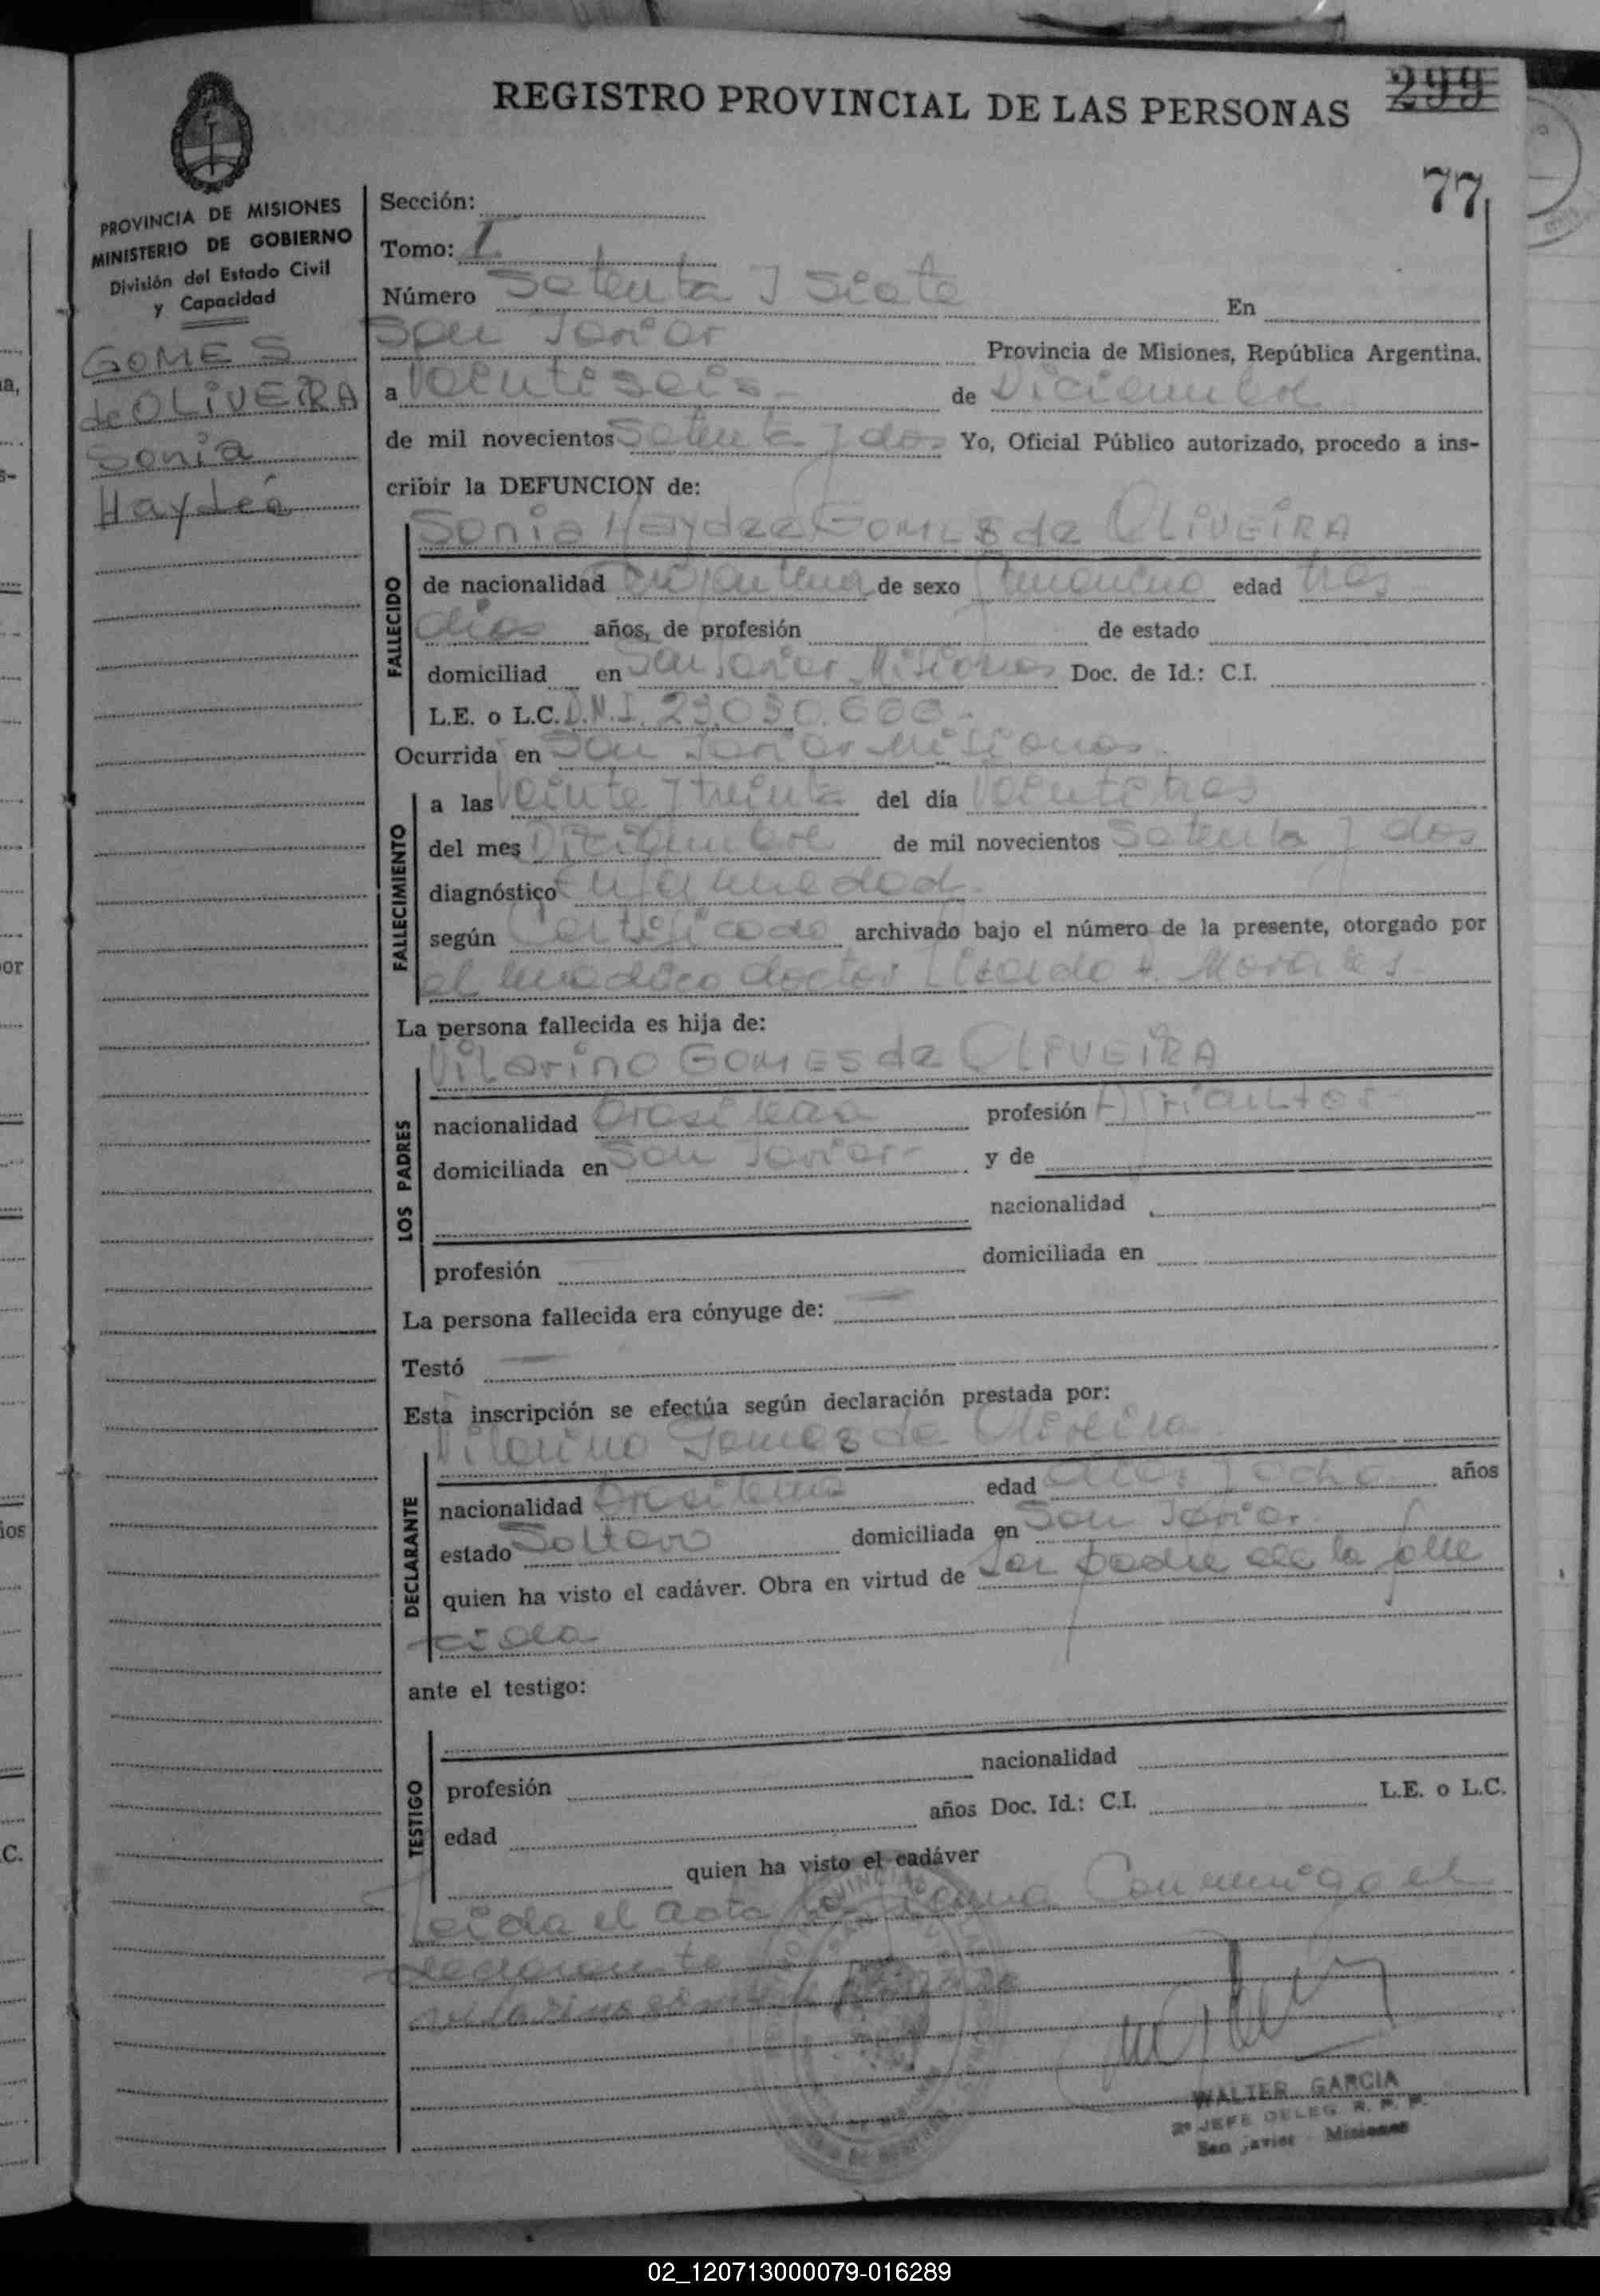 REGISTRO PROVINCIAL DE LAS PERSONAS
299
77
PROVINCIA DE MISIONES
MINISTERIO DE GOBIERNO
División del Estado Civil
y Capacidad
GOMES
de OLIVEIRA
Sonia
Haydeé
Sección:
Tomo: I
Número Setenta y Siete En
San Javier Provincia de Misiones, República Argentina,
a Veintiseis de Diciembre
de mil novecientos Setenta y dos Yo, Oficial Público autorizado, procedo a ins-
cribir la DEFUNCION de:
FALLECIDO
Sonia Haydee GOMES de OLIVEIRA
de nacionalidad Argentina de sexo femenino edad tres
dias años, de profesión de estado
domiciliad en San Javier Misiones Doc. de Id.: C.I.
L.E. o L.C. D.N.I. 23.030.666
Ocurrida en San Javier Misiones
FALLECIMIENTO
a las Veinte y treinta del día Veintitres
del mes Diciembre de mil novecientos Setenta y dos
diagnóstico Enfermedad
según Certificado archivado bajo el número de la presente, otorgado por
el medico doctor Lisardo A. Morales
La persona fallecida es hija de:
LOS PADRES
Vilarino GOMES de OLIVEIRA
nacionalidad Brasilera profesión Agricultor
domiciliada en San Javier y de
nacionalidad
profesión domiciliada en
La persona fallecida era cónyuge de:
Testó
Esta inscripción se efectúa según declaración prestada por:
DECLARANTE
Vilarino Gomes de Oliveira
nacionalidad Brasilera edad años
estado Soltero domiciliada en San Javier
quien ha visto el cadáver. Obra en virtud de Ser padre de la falle
cida
ante el testigo:
TESTIGO
profesión nacionalidad
edad años Doc. Id.: C.I. L.E. o L.C.
quien ha visto el cadáver
Leida el acta la firma Conmigo el
declarante
WALTER GARCIA
2º JEFE DELEG. R. P. P.
San Javier Misiones
02_120713000079-016289